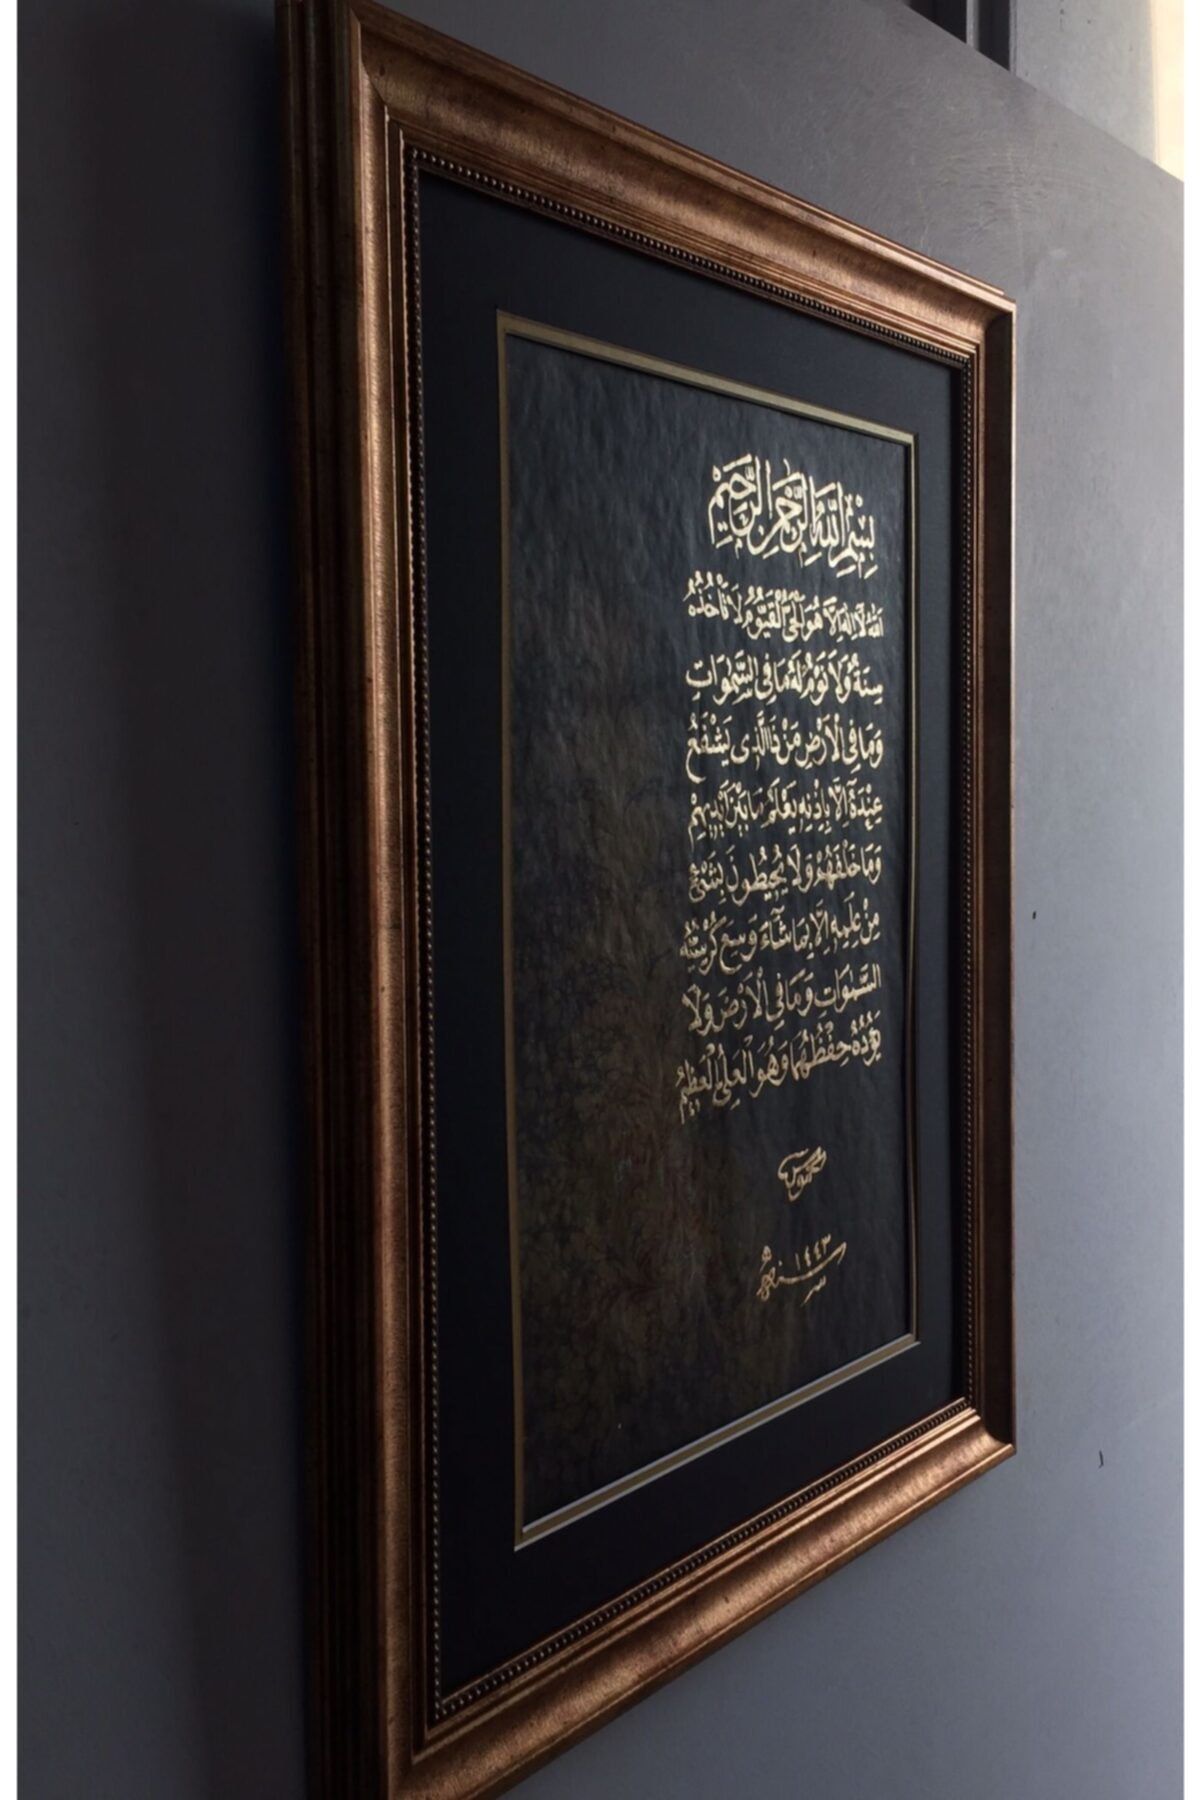 بِسْمِ اللّٰهِ الرَّحْمٰنِ الرَّحِيمِ
اَللّٰهُ لَا اِلٰهَ اِلَّا هُوَ الْحَيُّ الْقَيُّومُ لَا تَأْخُذُهُ
سِنَةٌ وَلَا نَوْمٌ لَهُ مَا فِى السَّمٰوَاتِ
وَمَا فِى الْاَرْضِ مَنْ ذَا الَّذِى يَشْفَعُ
عِنْدَهُ اِلَّا بِاِذْنِهِ يَعْلَمُ مَا بَيْنَ اَيْدِيهِمْ
وَمَا خَلْفَهُمْ وَلَا يُحِيطُونَ بِشَىْءٍ
مِنْ عِلْمِهِ اِلَّا بِمَا شَاءَ وَسِعَ كُرْسِيُّهُ
السَّمٰوَاتِ وَمَا فِى الْاَرْضِ وَلَا
يَؤُدُهُ حِفْظُهُمَا وَهُوَ الْعَلِىُّ الْعَظِيمُ
سنه ١٤٤٣